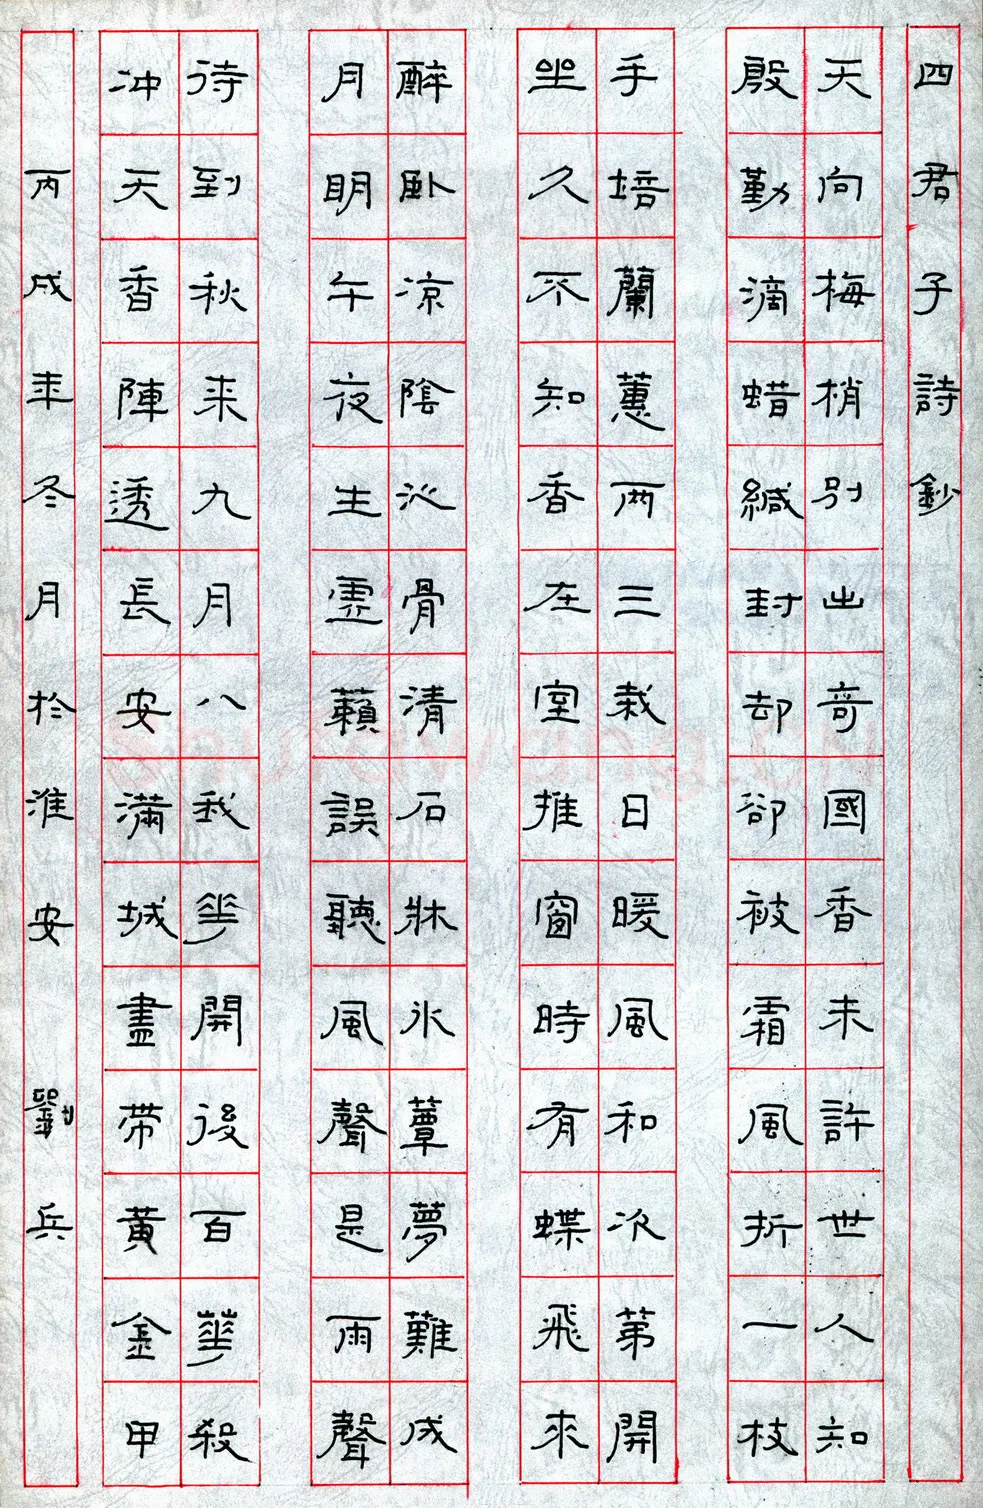 四君子詩鈔
天向梅梢別出奇國香未許世人知
殷勤滴蜡緘封却卻被霜風折一枝
手培蘭蕙兩三栽日暖風和次第開
坐久不知香在室推窗時有蝶飛來
醉臥凉陰沁骨清石牀氷蕈夢難成
月明午夜生虛藾誤聽風聲是雨聲
待到秋来九月八我華開後百華殺
冲天香陣透長安滿城盡帶黃金甲
丙戌年冬月於淮安 劉兵